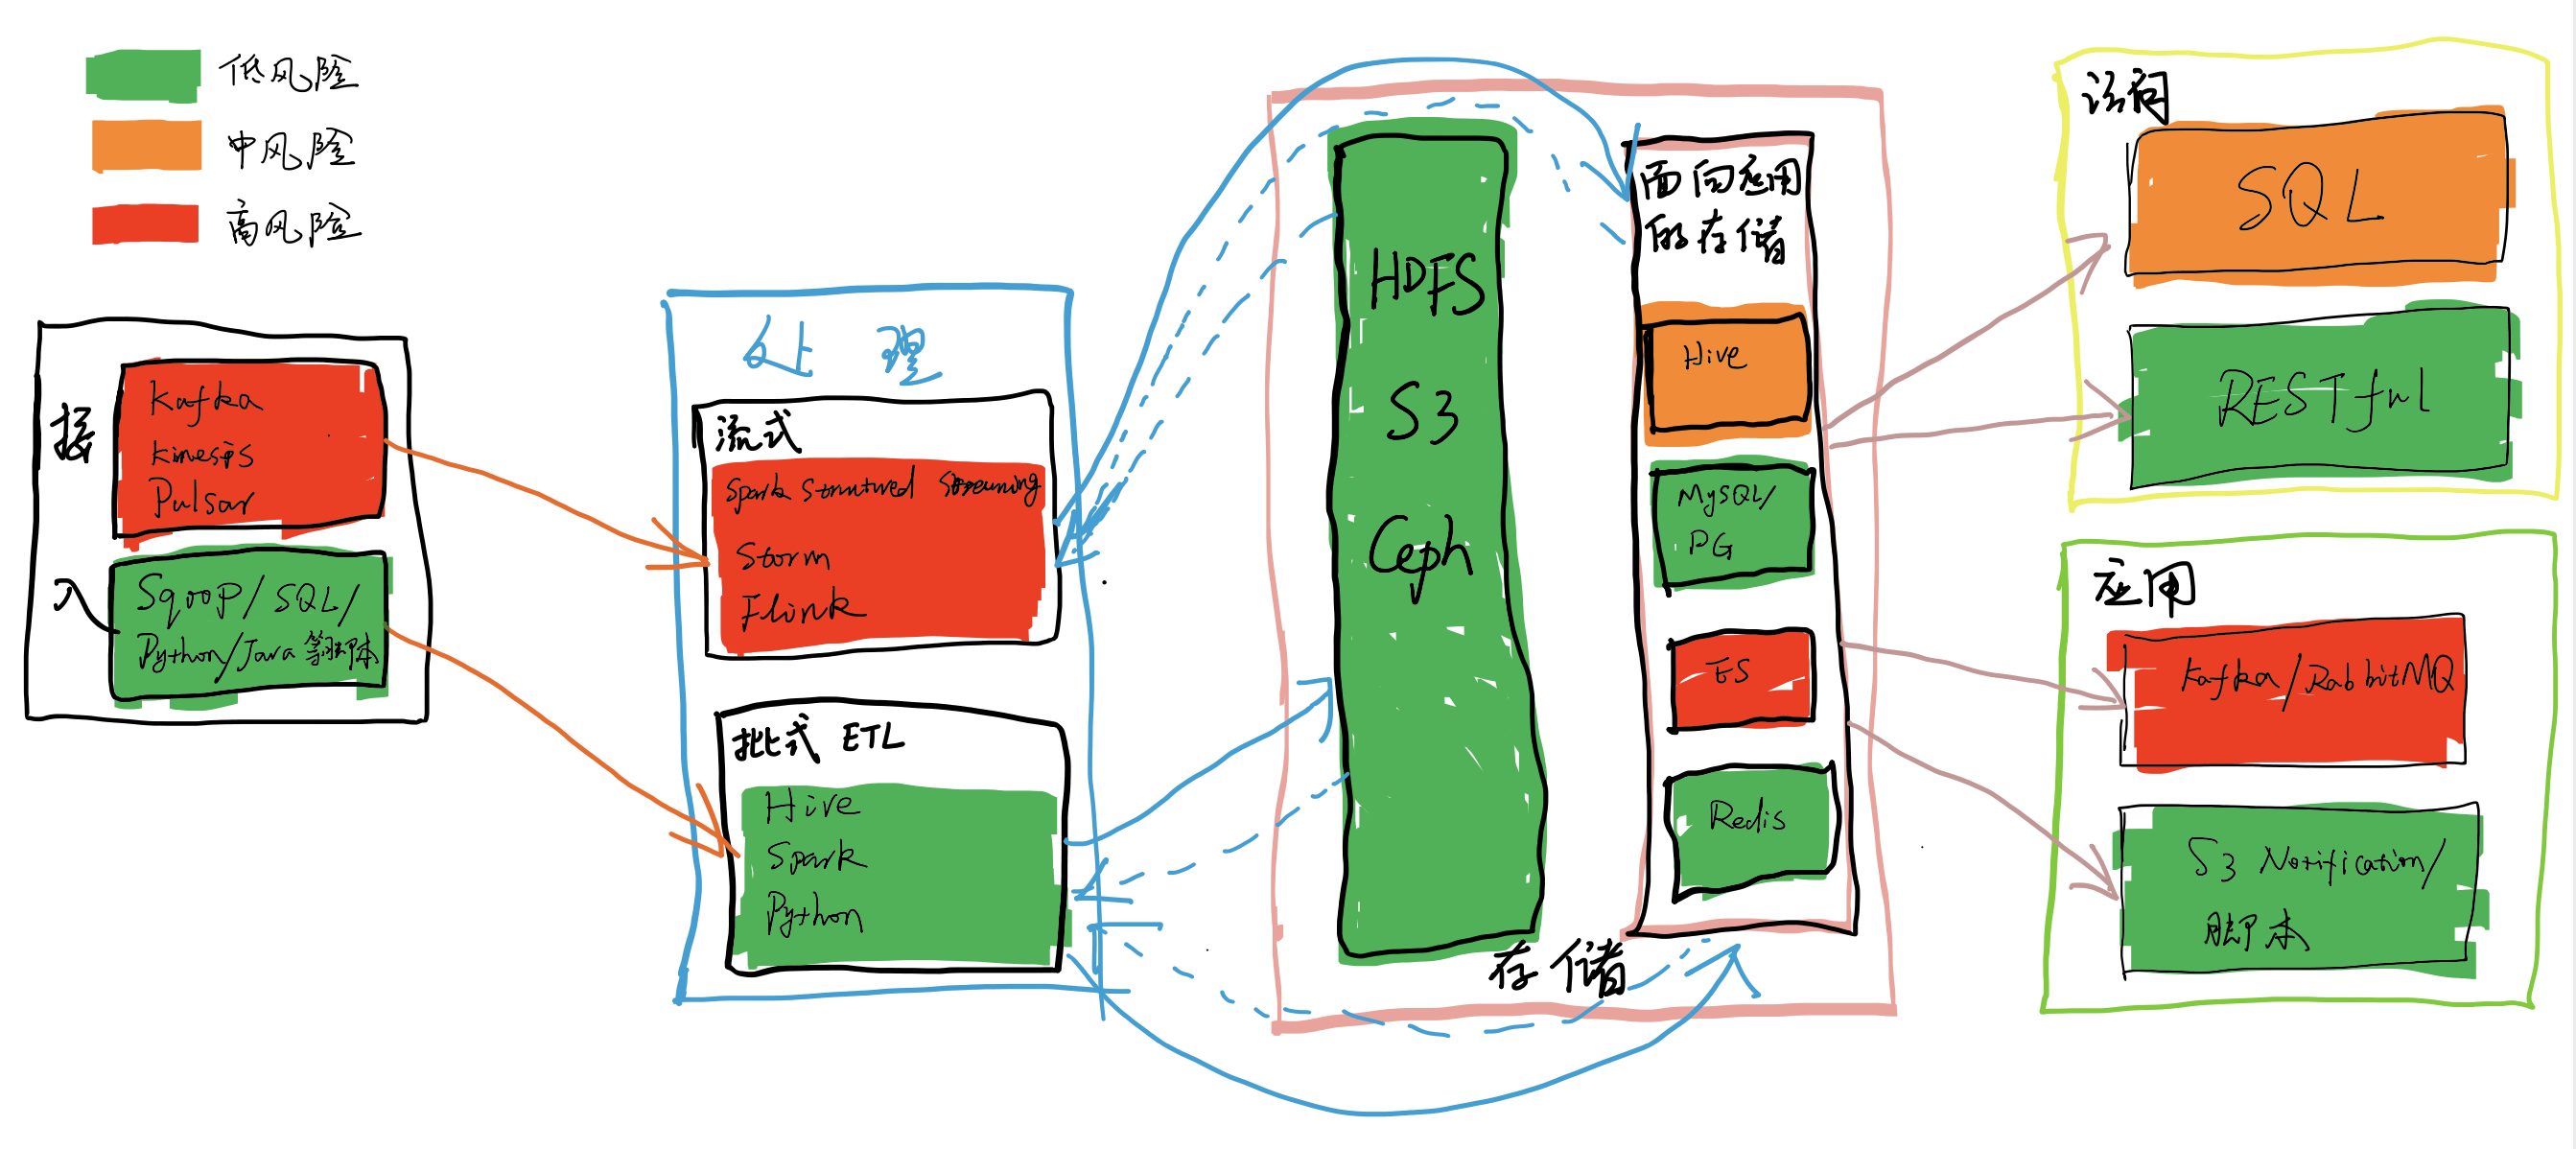 低风险
中风险
高风险
接
入
Kafka
Kinesis
Pulsar
Sqoop/SQL/
Python/Java 等脚本
处 理
流式
Spark Structured Streaming
Storm
Flink
批式 ETL
Hive
Spark
Python
HDFS
S3
Ceph
面向应用
的存储
Hive
MySQL/
PG
ES
Redis
存储
访问
SQL
RESTful
应用
Kafka/RabbitMQ
S3 Notification/
脚本